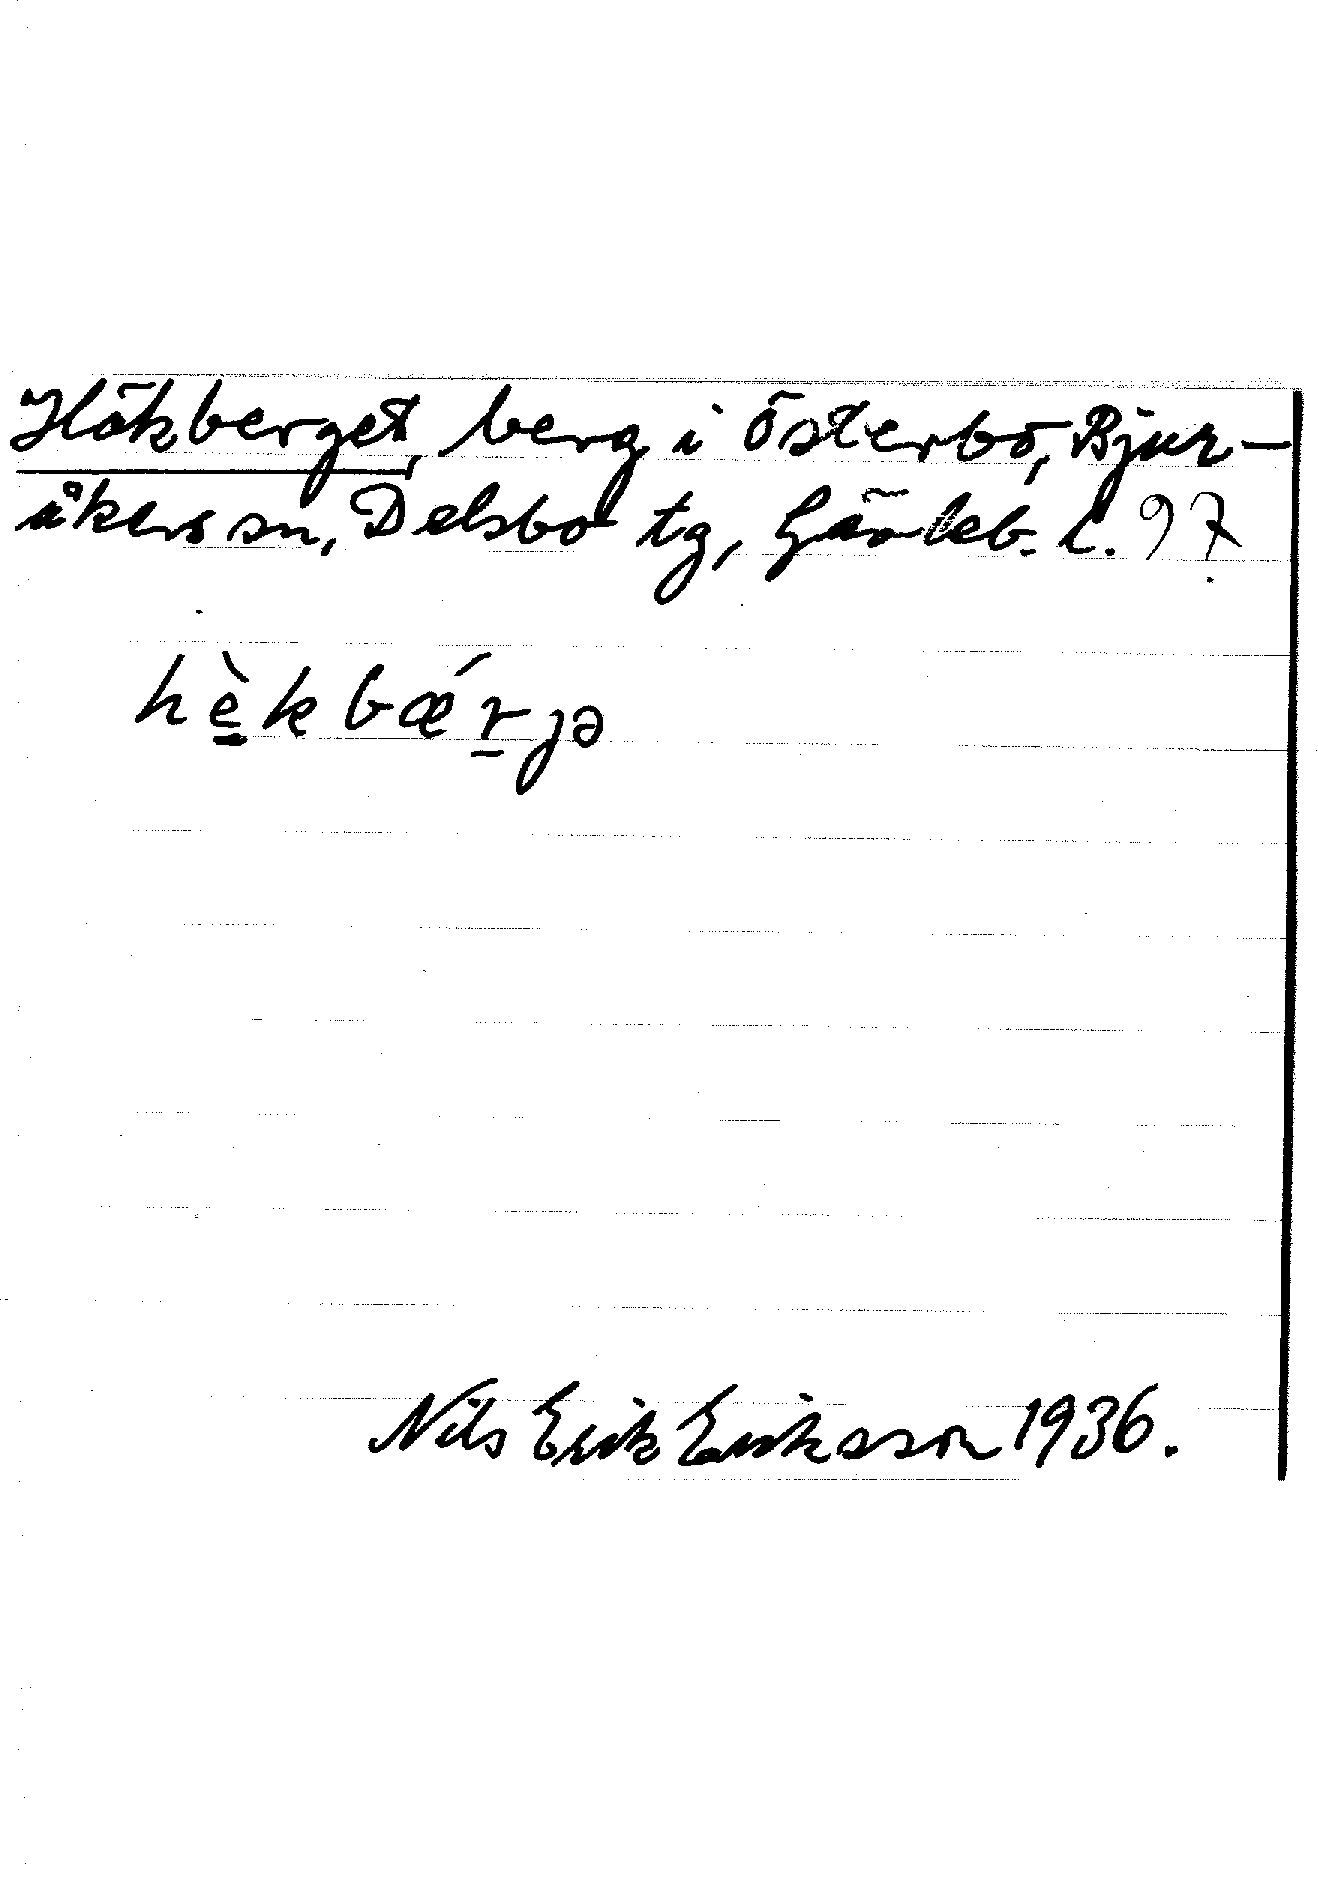 Hökberget, berg i Österbo, Bjur-
åkers sn, Delsbo tg, Gävleb. l. 97
hè̲kbǽr̲jə
Nils Erik Eriksson 1936.